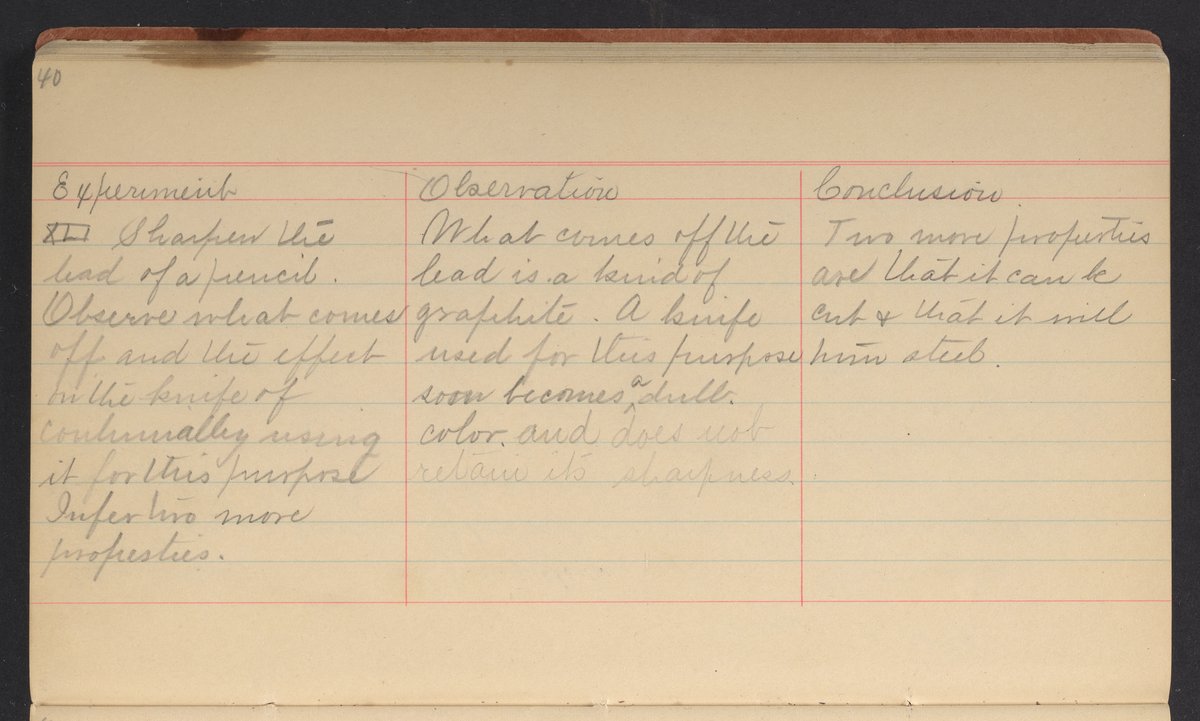 40
Experiment
XL Sharpen the
lead of a pencil.
Observe what comes
off and the effect
on the knife of
continually using
it for this purpose
Infer two more
properties.
Observation
What comes off the
lead is a kind of
graphite. A knife
used for this purpose
soon becomes a dull.
color. and does not
retain its sharpness.
Conclusion
Two more properties
are that it can be
cut & that it will
steel.